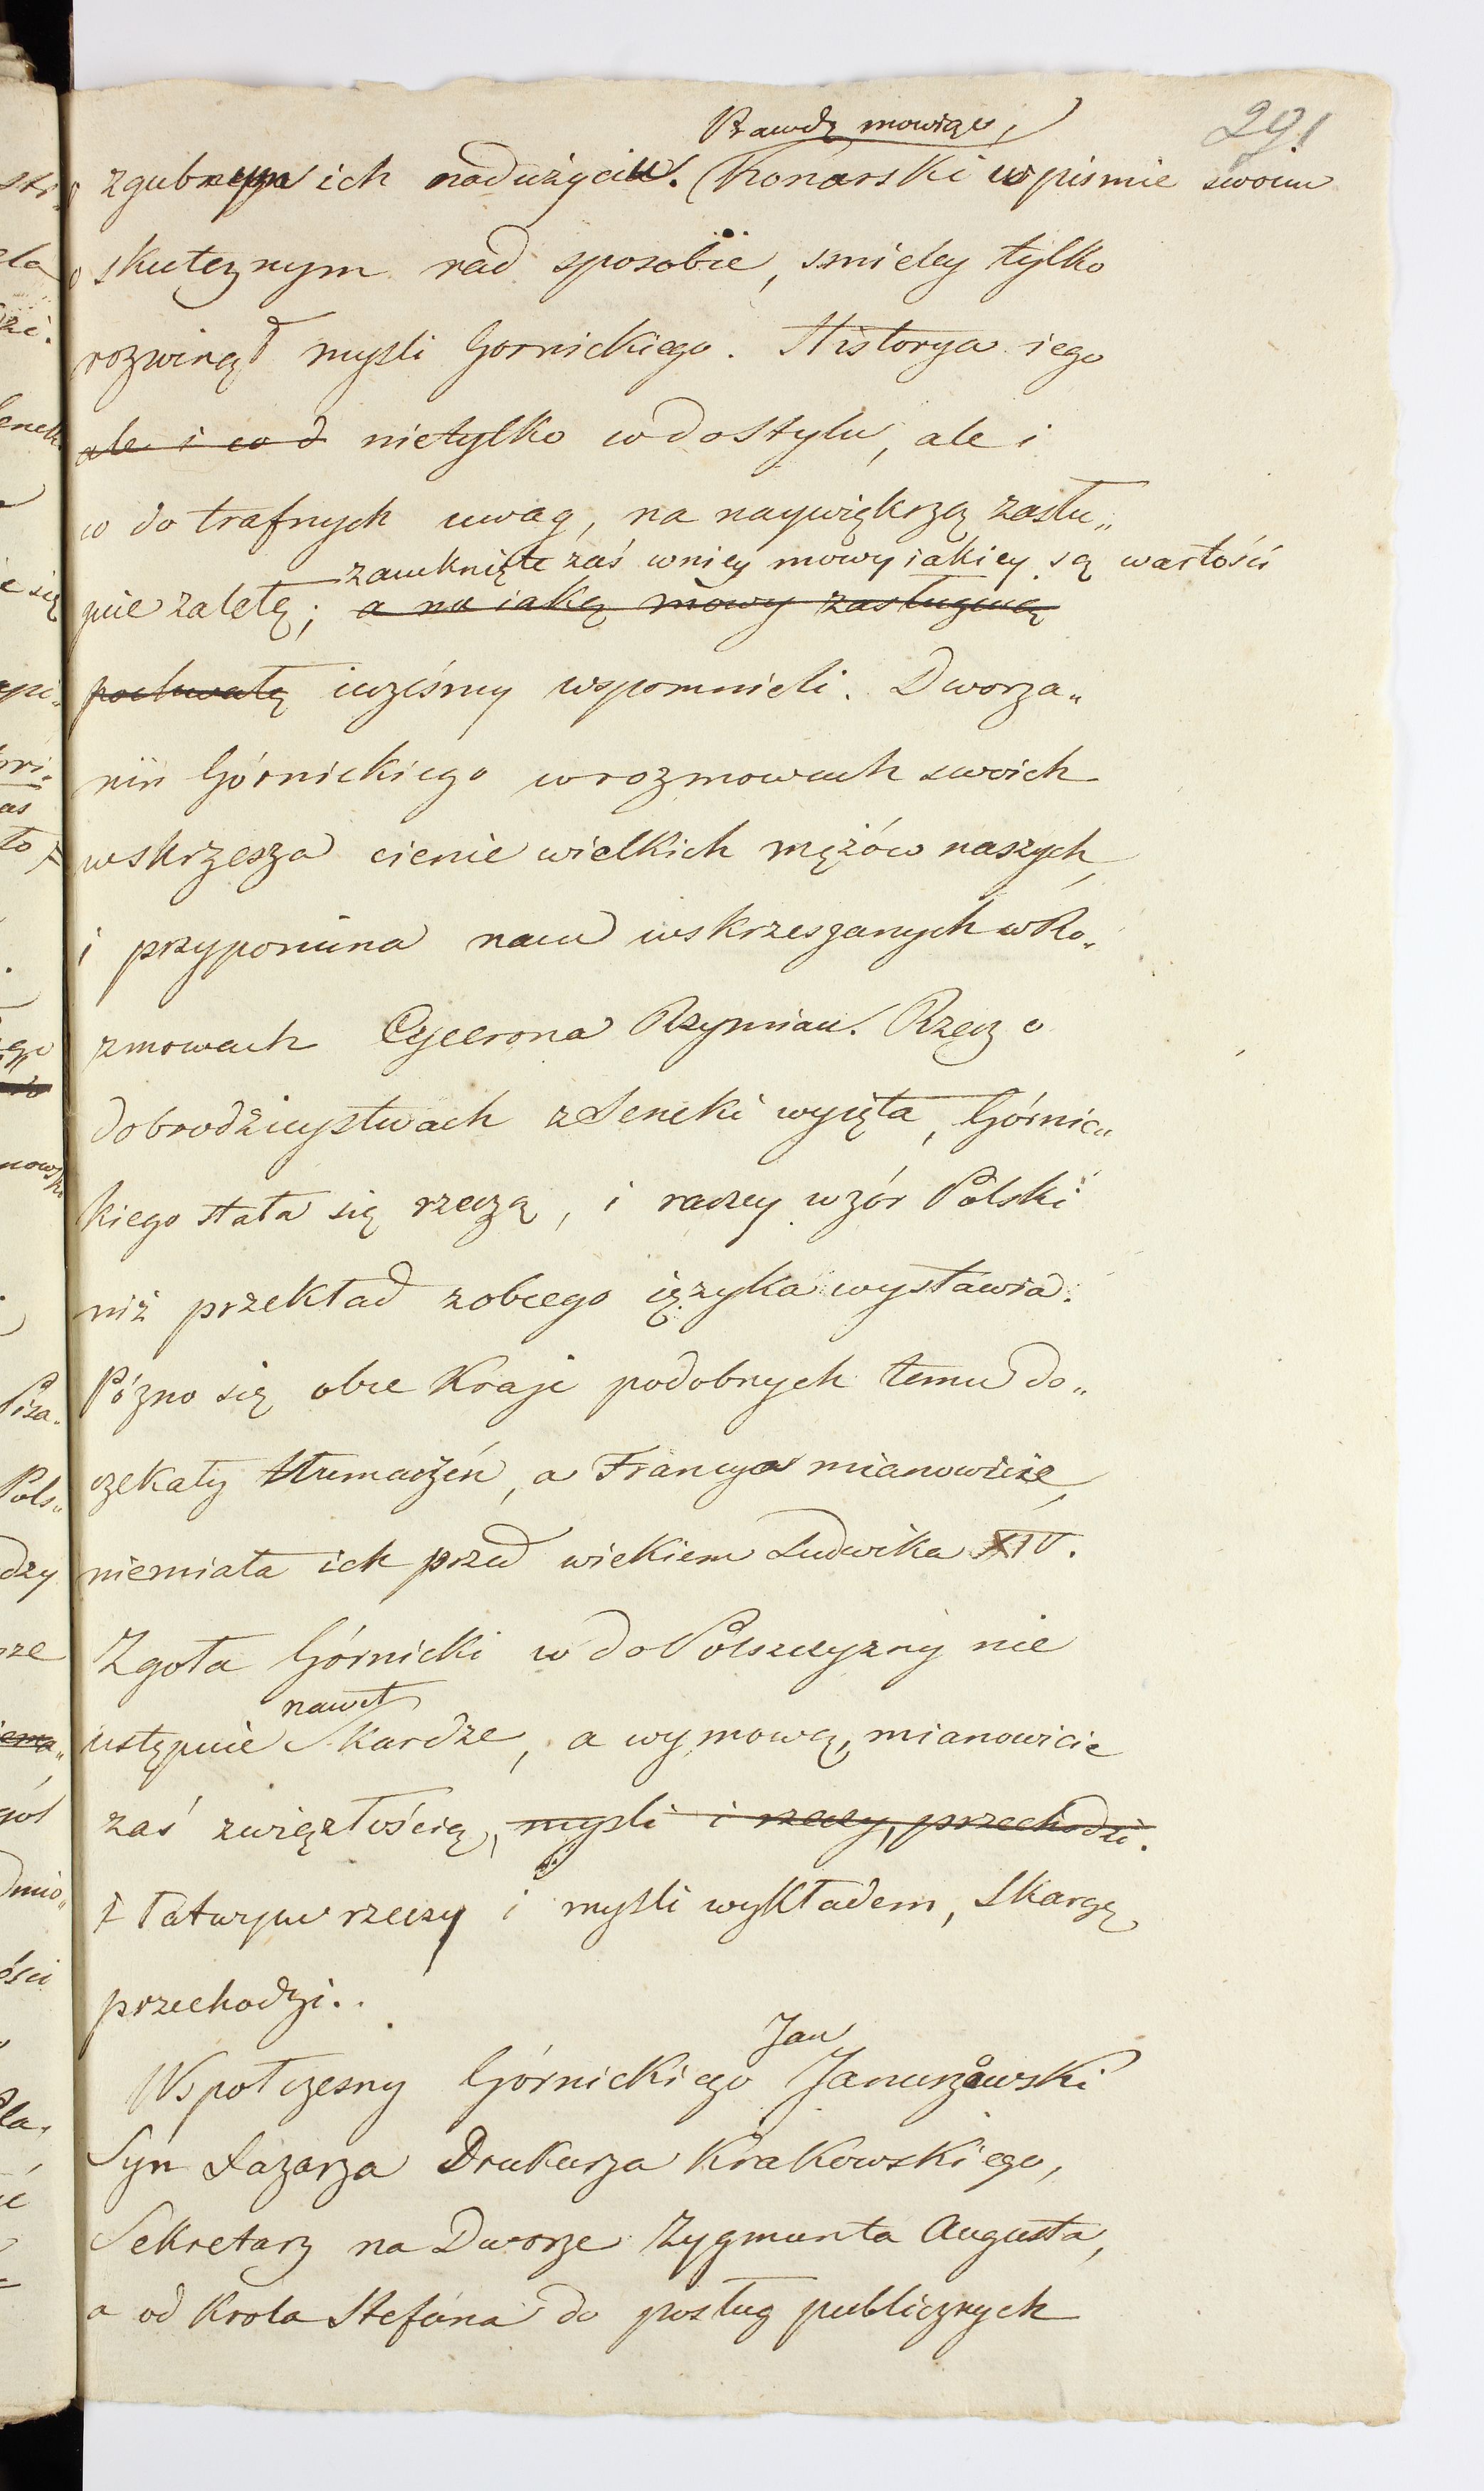 291
Prawdę mowiąc,
zgubnym ich nadużyciu. (Konarski w pismie swoim
o skutecznym rad sposobie, smieley tylko
rozwinął mysli Gornickiego. Historya iego
ale i co d nietylko co do stylu, ale i
co do trafnych uwag, na naywiększą zasłu„
zamknięte zaś w niey mowy iakiey są wartości
guie zaletę; a na iaką mowy zasługuią
pochwałę iużeśmy wspomnieli. Dworza„
nin Górnickiego w rozmowach swoich
wskrzesza cienie wielkich mężów naszych,
i przypomina nam wskrzeszanych w Ro„
zmowach Cycerona Rzymian. Rzecz o
dobrodzieystwach z Seneki wyięta, Górnic„
kiego stała się rzeczą, i raczey wzór Polski
niż przekład z obcego ięzyka wystawia.
Pózno się obce Kraje podobnych temu do„
czekały tłumaczeń, a Francya mianowicie,
niemiała ich przed wiekiem Ludwika XIV.
Zgoła Górnicki co do Polszczyzny nie
nawet
ustępuie Skardze, a wymową, mianowicie
zaś zwięzłością, mysli i rzeczy, przechodzi.
i łatwym rzeczy i mysli wykładem, Skargę
przechodzi.
Jan
Wspołczesny Górnickiego Januszowski
Syn Łazarza Drukarza Krakowskiego,
Sekretarz na Dworze Zygmunta Augusta,
a od Krola Stefana do posług publicznych